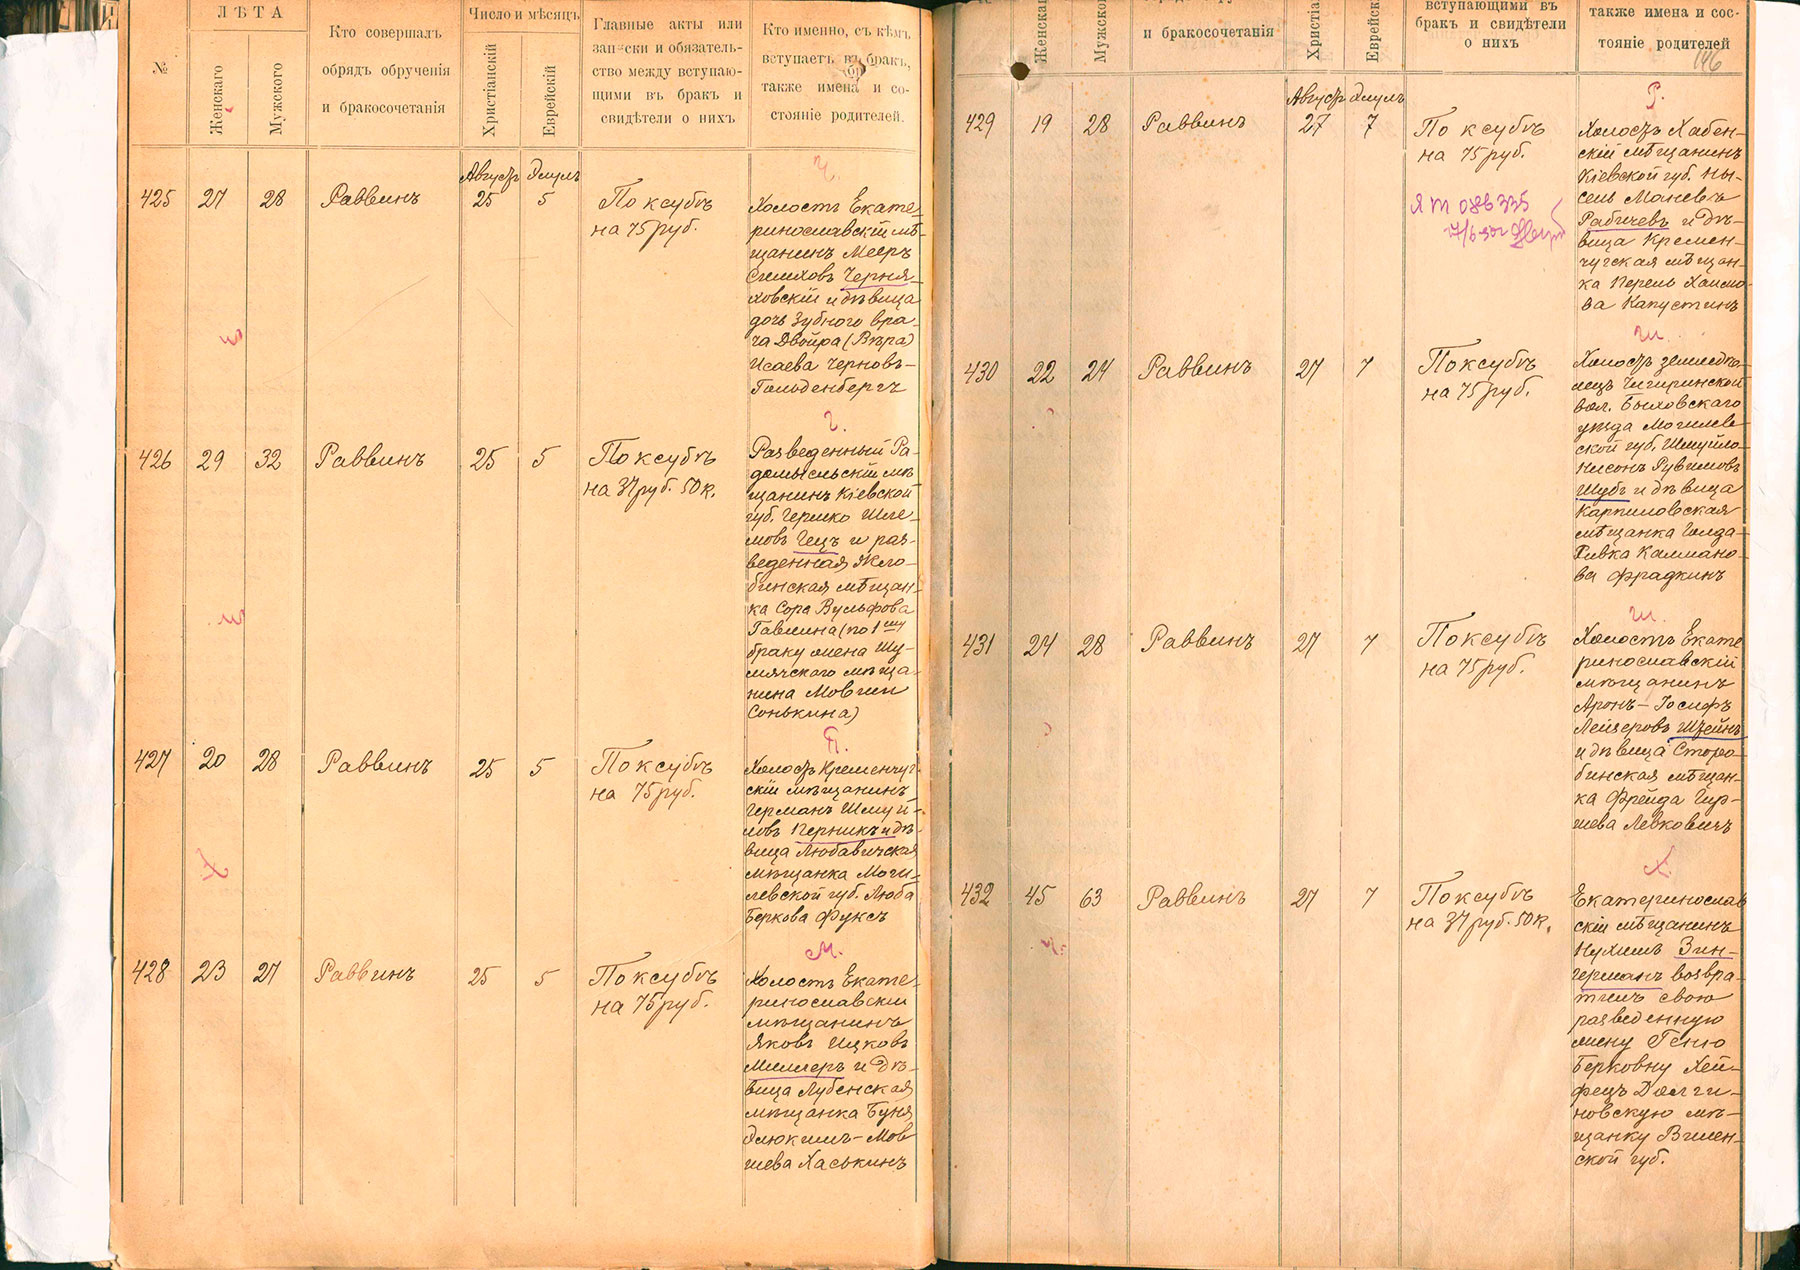 №
ЛѢТА
Женскаго
Мужского
Кто совершалъ
обрядъ обрученія
и бракосочетанія
Число и мѣсяцъ
Христіанскій
Еврейскій
Главные акты или
записки и обязатель-
ство между вступаю-
щими въ бракъ и
свидѣтели о нихъ
Кто именно, съ кѣмъ
вступаетъ въ бракъ,
также имена и со-
стояніе родителей.
Ч.
425 27 28 Раввинъ Августъ 25 Элулъ 5
По ксубѣ
на 75 руб.
Холостъ Екате-
ринославскій мѣ-
щанинъ Мееръ
Черня-
ховскій и дѣвица
дочь Зубного вра-
ча Двойра (Вѣра)
Исаева Черновъ-
Гольденбергъ
Г.
426 29 32 Раввинъ 25 5
По ксубѣ
на 37 руб. 50 к.
Разведенный Ра-
домысльскій мѣ-
щанинъ Кіевской
губ. Гершко Шле-
мовъ Гецъ и раз-
веденная Жло-
бинская мѣщан-
ка Сора Вульфова
(по 1му
браку жена Шу-
мячского мѣща-
нина Мовши
Сонькина)
П.
427 20 28 Раввинъ 25 5
По ксубѣ
на 75 руб.
Холостъ Кременчуг-
скій мѣщанинъ
Германъ Шмуй-
ловъ Перникъ и дѣ-
вица Любавичская
мѣщанка Моги-
левской губ. Люба
Беркова Фуксъ
М.
428 23 27 Раввинъ 25 5
По ксубѣ
на 75 руб.
Холостъ Екате-
ринославскій
мѣщанинъ
Яковъ Ицковъ
Миллеръ и дѣ-
вица Лубенская
мѣщанка Буня
Мов-
шева Хаськинъ
Женскаго
Мужского
и бракосочетанія
вступающими въ
бракъ и свидѣтели
о нихъ
также имена и сос-
тояніе родителей
146
Р.
429 19 28 Раввинъ Августъ 27 Элулъ 7
По ксубѣ
на 75 руб.
Холостъ Хабен-
скій мѣщанинъ
Кіевской губ. Ны-
сель Маневъ
Рабичевъ и дѣ-
вица Кремен-
чугская мѣщан-
ка Перель Хаимо-
ва Капустинъ
Ш.
430 22 24 Раввинъ 27 7
По ксубѣ
на 75 руб.
Холостъ земледѣ-
лецъ Чигиринской
вол. Быховскаго
уѣзда Могилев-
ской губ. Шмуйло-
Нисонъ Рувимовъ
Шубъ и дѣвица
Карпиловская
мѣщанка Голда-
Ривка Калмано-
ва Фрадкинъ
Ш.
431 24 28 Раввинъ 27 7
По ксубѣ
на 75 руб.
Холостъ Екате-
ринославскій
мѣщанинъ
Аронъ-Іосифъ
Лейзеровъ Штейнъ
и дѣвица Старо-
бинская мѣщан-
ка Фрейда Гир-
шева Левковичъ
Х.
432 45 63 Раввинъ 27 7
По ксубѣ
на 37 руб. 50 к.
Екатеринослав-
скій мѣщанинъ
Нухимъ Зин-
германъ возвра-
тилъ свою
разведенную
жену Геню
Берковну Хей-
фецъ Долги-
новскую мѣ-
щанку Вилен-
ской губ.